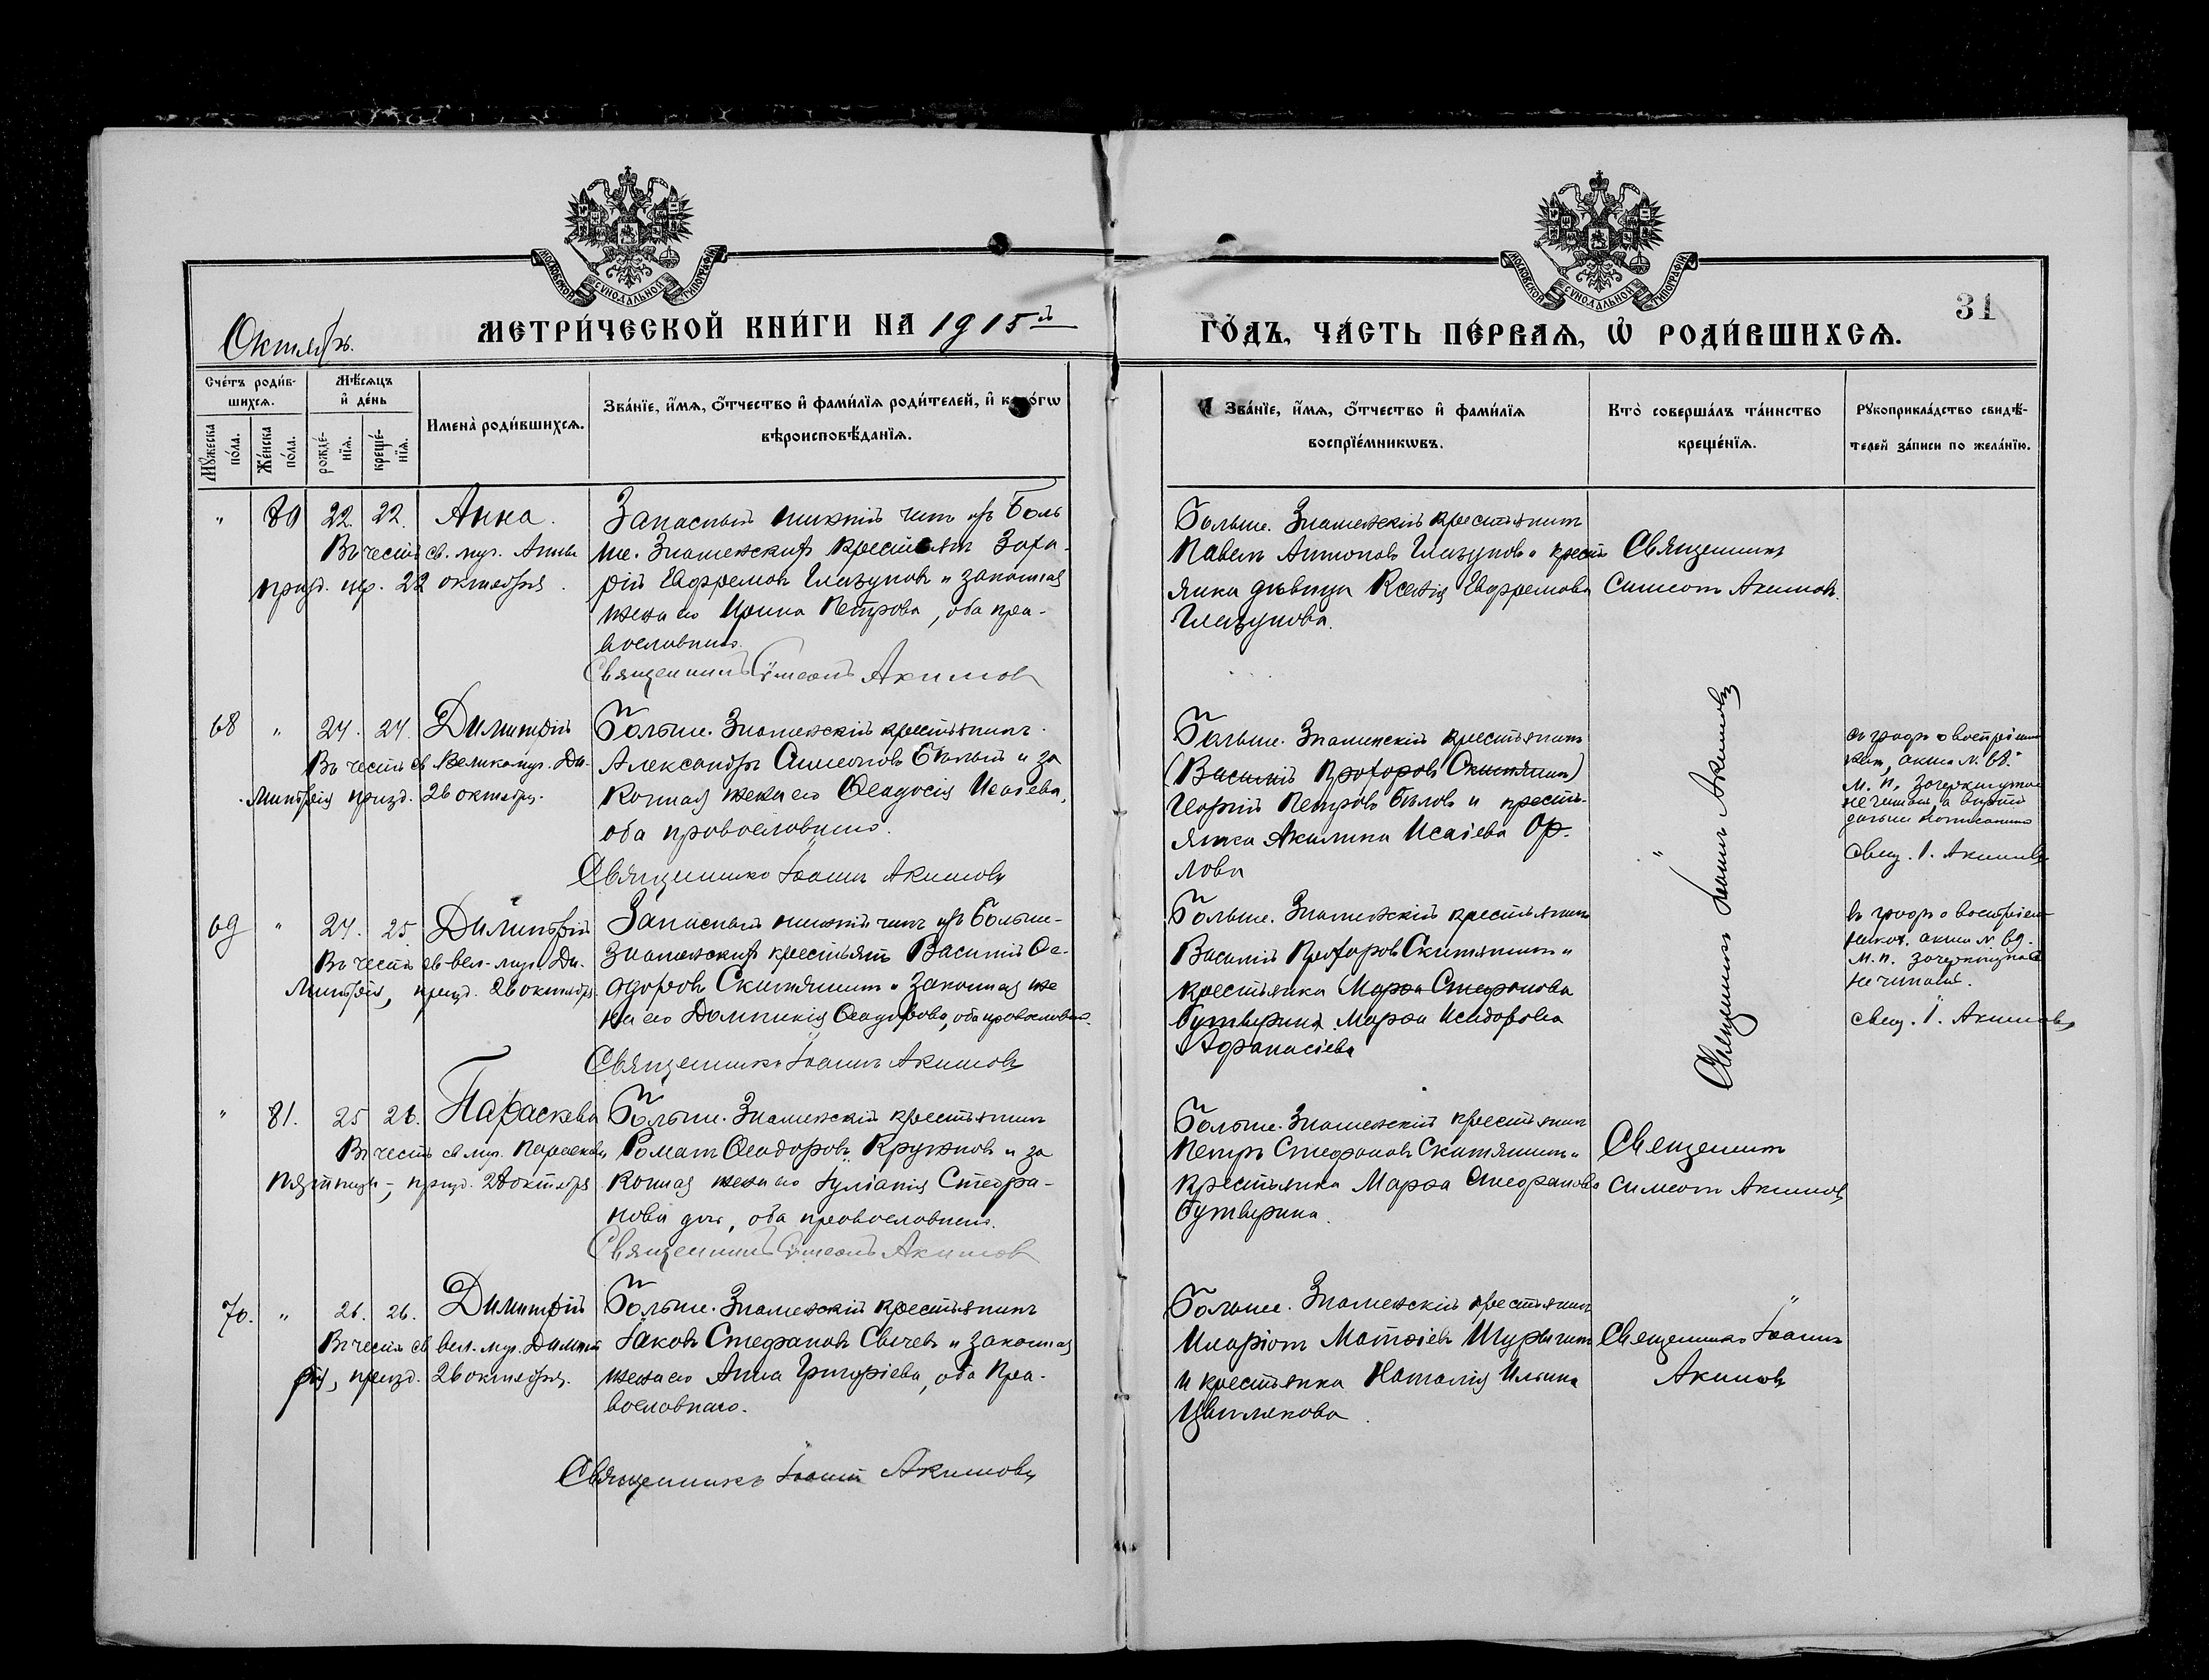 МОСКОВСКОЙ СУНОДАЛЬНОЙ ТИПОГРАФІИ
МОСКОВСКОЙ СУНОДАЛЬНОЙ ТИПОГРАФІИ
31
Октябрь.
МЕТРИ́ЧЕСКОЙ КНИ́ГИ НА 1915й
ГО́ДЪ, ЧА́СТЬ ПЕ́РВАѦ, Ѡ҆ РОДИ́ВШИХСѦ.
Сче́тъ роди́в-
шихсѧ.
Мꙋ́жеска по́ла.
Же́нска по́ла.
Мѣ́сѧцъ
и҆ де́нь
рожде́-
нїѧ.
креще́-
нїѧ.
Имена̀ роди́вшихсѧ.
Зва́нїе, и҆́мѧ, ѻ҆́тчество и҆ фами́лїѧ роди́телей, и҆ како́гѡ
вѣроисповѣ́данїѧ.
Зва́нїе, и҆́мѧ, ѻ҆́тчество и҆ фами́лїѧ
воспрїе́мникѡвъ.
Кто̀ соверша́лъ та́инство
креще́нїѧ.
Рꙋкоприкла́дство свидѣ́-
телей за́писи по жела́нїю.
" 80 22. 22. Анна.
Въ честь св. муч. Анны
празд. цер. 22 октября.
Запасный нижній чинъ изъ Боль
ше. Знаменскихъ крестьянъ Заха-
рій Ефремовъ Глазуновъ и законная
жена его Ирина Петрова, оба пра-
вославные.
Священникъ Сѵмеонъ Акимовъ
Больше. Знаменскій крестьянинъ
Павелъ Антоновъ Глазуновъ и кресть
янка дѣвица Ксенія Ефремова
Глазунова.
Священникъ
Симеонъ Акимовъ.
68 " 24. 24. Димитрій
Въ честь св Великомуч. Ди-
митрія празд. 26 октября.
Больше. Знаменскій крестьянинъ
Александръ Симеоновъ Бѣлый и за
конная жена его Ѳеодосія Исаіева,
оба православные.
Священникъ Іоаннъ Акимовъ
Больше. Знаменскій крестьянинъ
(Василій Прохоровъ Скитянинъ)
Георгій Петровъ Бѣловъ и кресть-
янка Акилина Исаіева Ор-
лова
Священникъ Іоаннъ Акимовъ
въ графѣ о воспріемни
кахъ, акта № 68.
м. п. зачеркнутое
не читать, а вѣрить
дальше написанному
свящ. І. Акимовъ
69 " 24. 25. Димитрій
Въ честь св. вел. муч. Ди-
митрія, празд. 26 октября.
Запасный нижній чинъ изъ Больше-
Знаменскихъ крестьянъ Василій Ѳе-
одоровъ Скитянинъ и законная же
на его Домникія Ѳеодорова, оба православные.
Священникъ Іоаннъ Акимовъ
Больше. Знаменскій крестьянинъ
Василій Прохоровъ Скитянинъ и
крестьянка Марѳа Стефанова
Бутырина Марѳа Исидорова
Афанасіева
въ графѣ о воспріем-
никахъ. акта № 69.
м. п. зачеркнутое
не читать.
свящ. І. Акимовъ
" 81. 25 26. Параскева
Въ честь св муч. Параскевы
Пятницы, празд. 28 октября
Больше. Знаменскій крестьянинъ
Романъ Ѳеодоровъ Кружновъ и за
конная жена его Іуліанія Стефа-
нова дочь, оба православные.
Священникъ Сѵмеонъ Акимовъ
Больше. Знаменскій крестьянинъ
Петръ Стефановъ Скитянинъ и
крестьянка Марѳа Стефанова
Бутырина.
Священникъ
Симеонъ Акимовъ
70. " 26. 26. Димитрій
Въ честь св вел. муч. Димит
рія, празд. 26 октября.
Больше. Знаменскій крестьянинъ
Іаковъ Стефановъ Сычевъ и законная
жена его Анна Григоріева, оба пра-
вославнаго.
Священникъ Іоаннъ Акимовъ
Больше. Знаменскій крестьянинъ
Иларіонъ Матѳіевъ Шурыгинъ
и крестьянка Наталія Ильина
Цвилякова.
Священникъ Іоаннъ
Акимовъ